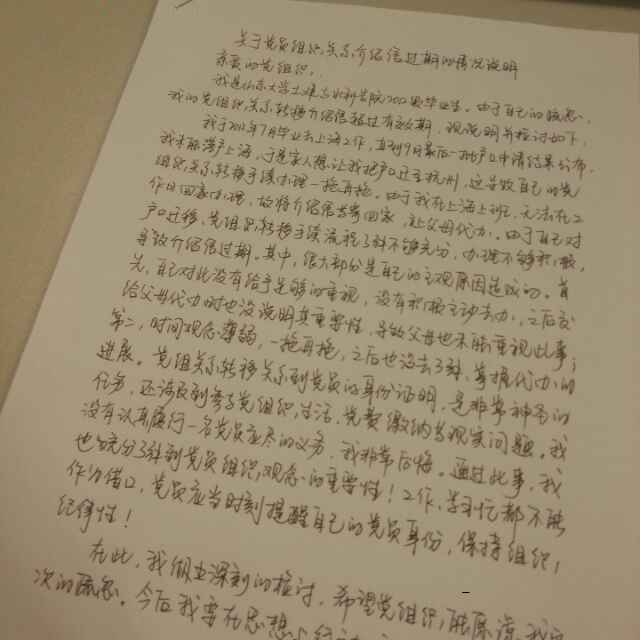 关于党员组织关系介绍信过期的情况说明
亲爱的党组织:
我是山东大学土建与水利学院2011届毕业生。由于自己的疏忽,
我的党组织关系转接介绍信超过有效期,现说明并检讨如下:
我于2011年7月毕业去上海工作,直到9月最后一批户口申请结果公布,
我未能落户上海,于是家人想让我把户口迁至杭州,这导致自己的党
组织关系转移手续办理一拖再拖。由于我在上海上班,无法在工
作日回家办理,故将介绍信寄回家,让父母代办。由于自己对
户口迁移、党组织转移手续流程了解不够充分,办理不够积极,
导致介绍信过期。其中,很大部分是自己的主观原因造成的。首
先,自己对此没有给予足够的重视,没有积极主动去办,之后交
给父母代办时也没说明其重要性,导致父母也未能重视此事;
第二,时间观念薄弱,一拖再拖,之后也没去了解、掌握代办的
进展。党组关系转移关系到党员的身份证明,是非常神圣的
任务,还涉及到参与党组织生活,党费缴纳等现实问题。我
没有认真履行一名党员应尽的义务,我非常后悔。通过此事,我
也充分了解到党员组织观念的重要性!工作、学习忙都不能
作为借口,党员应当时刻提醒自己的党员身份,保持组织
纪律性!
在此,我做出深刻的检讨,希望党组织能原谅我这
次的疏忽。今后我要在思想上